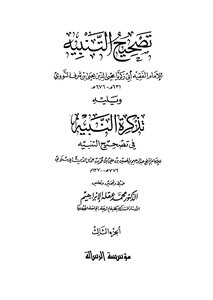 تصحيح التنبيه
للإمام الفقيه أبي زكريا محيي الدين يحيى بن شرف النووي
٦٣١هـ - ٦٧٦هـ
ويليه
تذكرة النبيه
في تصحيح التنبيه
للإمام جمال الدين عبد الرحيم بن الحسن
الدكتور محمد عقلة الإبراهيم
الجزء الثالث
مؤسسة الرسالة